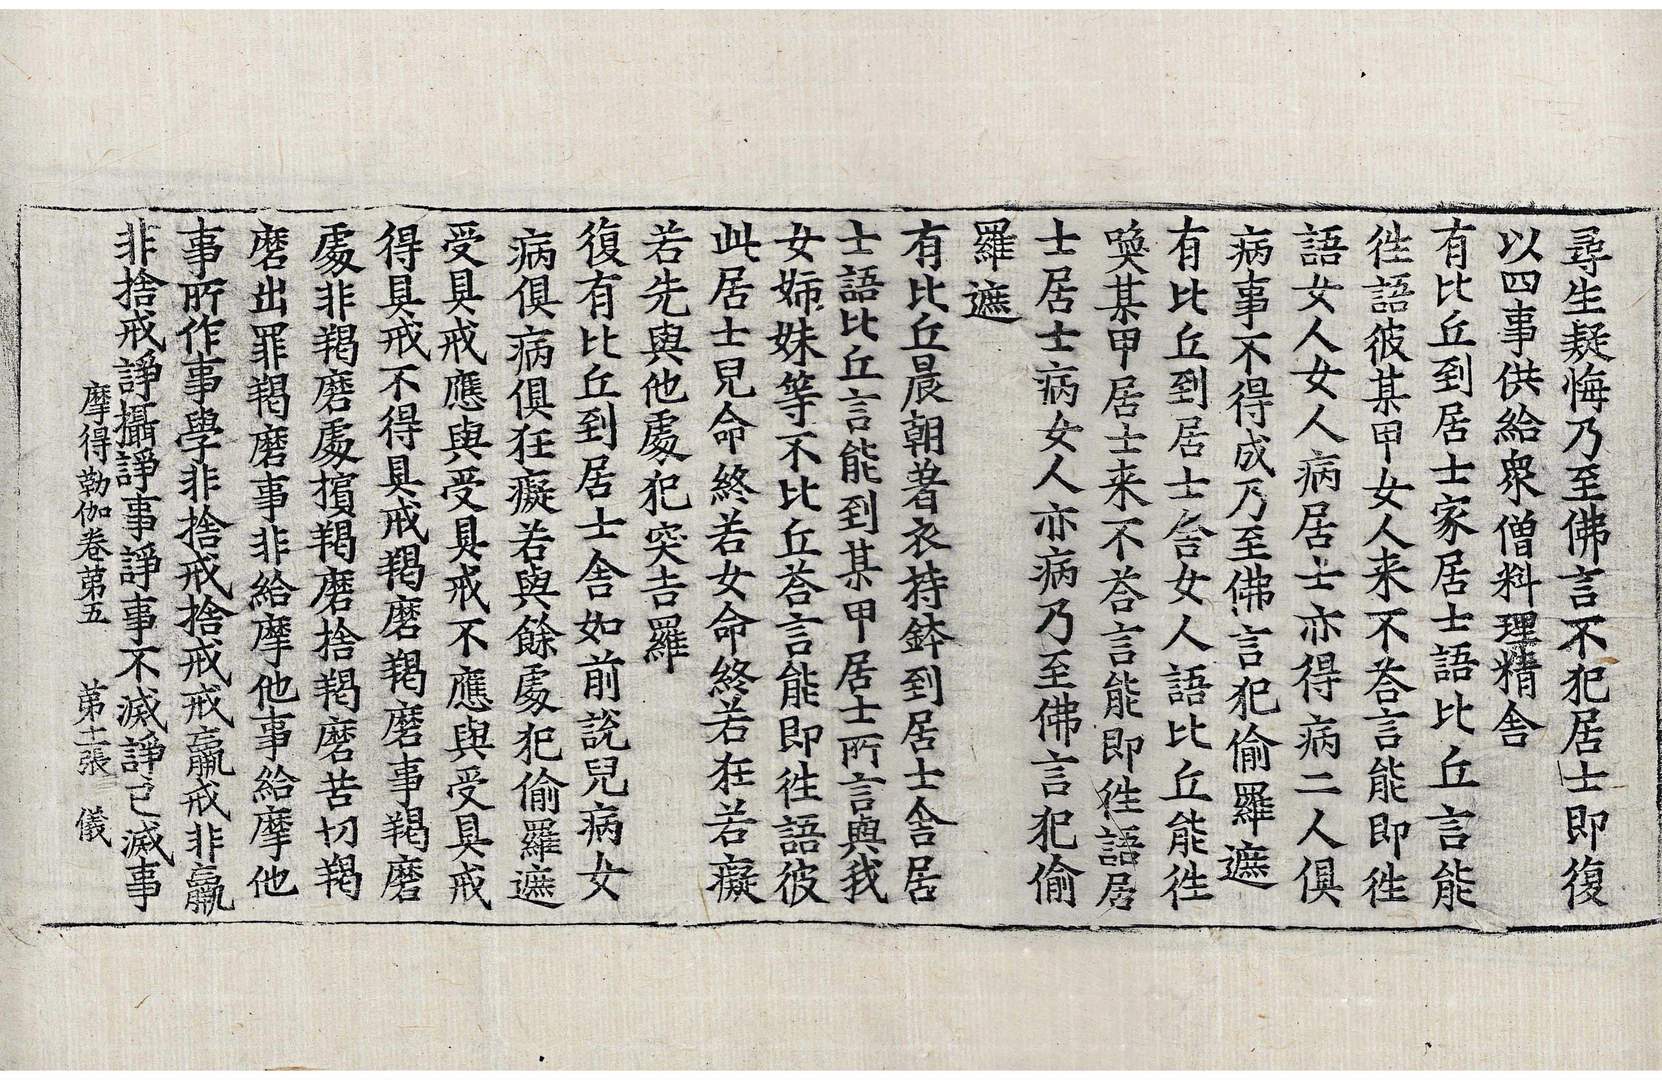 尋生疑悔乃至佛言不犯居士即復
以四事供給衆僧料理精舍
有比丘到居士家居士語比丘言能
徃語彼某甲女人来不荅言能即徃
語女人女人病居士亦得病二人俱
病事不得成乃至佛言犯偷羅遮
有比丘到居士舍女人語比丘能徃
喚某甲居士来不荅言能即徃語居
士居士病女人亦病乃至佛言犯偷
羅遮
有比丘晨朝著衣持鉢到居士舍居
士語比丘言能到某甲居士所言與我
女姉妹等不比丘荅言能即徃語彼
此居士兒命終若女命終若狂若癡
若先與他處犯突吉羅
復有比丘到居士舍如前說兒病女
病俱病俱狂癡若與餘處犯偷羅遮
受具戒應與受具戒不應與受具戒
得具戒不得具戒羯磨羯磨事羯磨
處非羯磨處擯羯磨捨羯磨苦切羯
磨出罪羯磨事非給摩他事給摩他
事所作事學非捨戒捨戒戒羸戒非羸
非捨戒諍攝諍事諍事不滅諍已滅事
摩得勒伽卷第五 第十張 儀